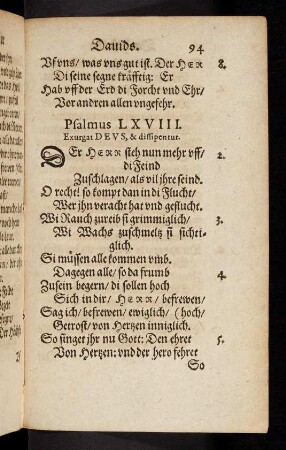 Dauids. 94
Vf vns/ was vns gut ist. Der HER 8.
Di seine segne kräfftig: Er
Hab vff der Erd di Forcht vnd Ehr/
Vor andren allen vngefehr.
Psalmus LXVIII.
Exurgat DEVS, & dissipentur.
DEr HERR steh nun mehr vff/ 2.
di Feind
Zuschlagen/ als vil jhr seind.
O recht! so kompt dan in di Flucht/
Wer jhn veracht hat vnd geflucht.
Wi Rauch zureib si grimmiglich/ 3.
Wi Wachs zuschmeltz si sichtig-
lich.
Si müssen alle kommen vmb.
Dagegen alle/ so da frumb 4.
Zusein begern/ di sollen hoch
Sich in dir/ HERR/ befrewen/
Sag ich/ befrewen/ ewiglich/ (hoch/
Getrost/ von Hertzen inniglich.
So singet jhr nu Gott: Den ehret 5.
Von Hertzen; vnd der hero fehret
So